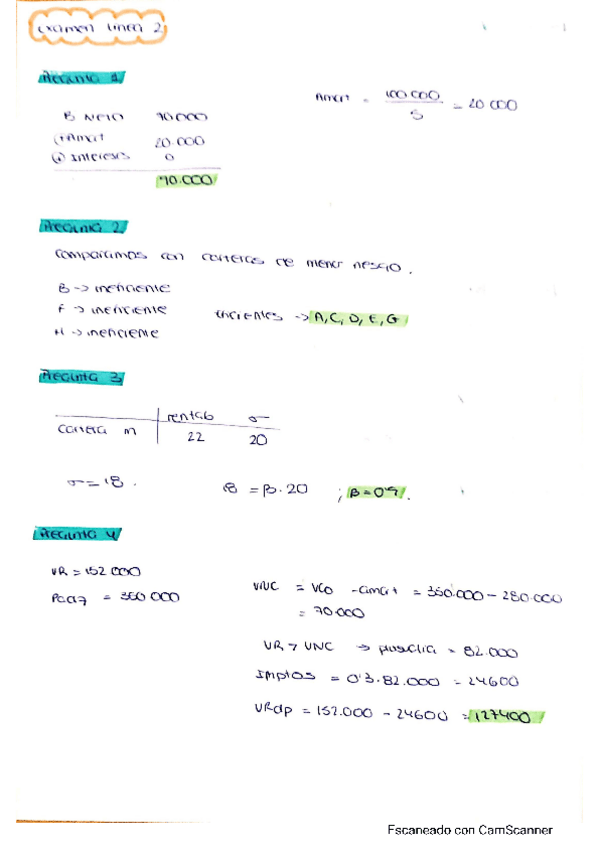 Examen Linea 2
Pregunta 1
B Neto 70.000
(+) Amort 20.000
(+) Intereses 0
90.000
Amort = 100.000 / 5 = 20 000
Pregunta 2
Comparamos con carteras de menor riesgo.
B -> ineficiente
F -> ineficiente
H -> ineficiente
Eficientes -> A, C, D, E, G
Pregunta 3
rentab σ
cartera m 22 20
σ = 18.
18 = β·20 ; β = 0'9.
Pregunta 4
VR = 152 000
Padq = 350 000
VNC = VCO - amort = 350.000 - 280.000
= 70.000
VR > VNC -> plusvalía = 82.000
Imptos = 0'3·82.000 = 24600
VRdp = 152.000 - 24600 = 127400
Escaneado con CamScanner